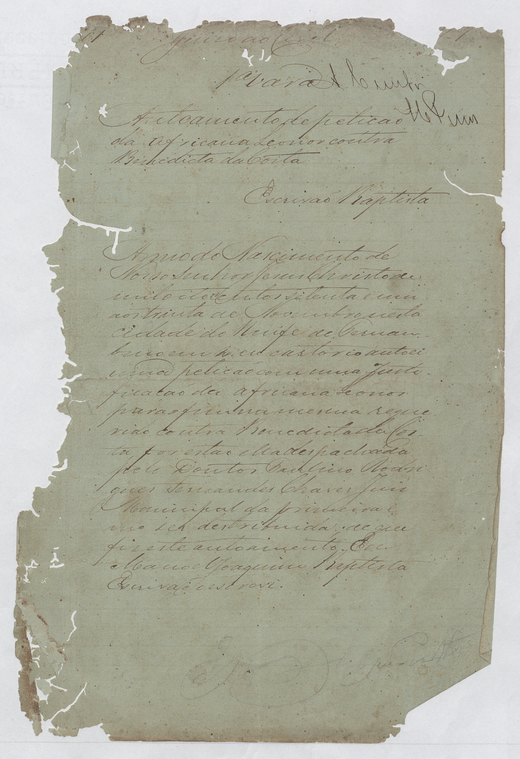 Juizo do Civel
1ª vara
Autoamento de petição
da Africana Leonor contra
Benedicta da Costa
Escrivão Baptista
Anno do Nascimento de
Nosso Senhor Jesus Christo de
mil oito centos setenta e um
aos trinta de Novembro nesta
cidade do Recife de Pernam
buco em meu cartorio autoei
uma petição com uma Justi
ficação da Africana Leonor
para o fim na mesma reque
rido contra Benedicta da Cos
ta por estar ella despachada
pelo Doutor
gues Fernandes Chaves Juiz
Municipal da primeira
distribuida; do que
fiz este autoamento. Eu
Manoel Joaquim Baptista
Escrivão escrevi.